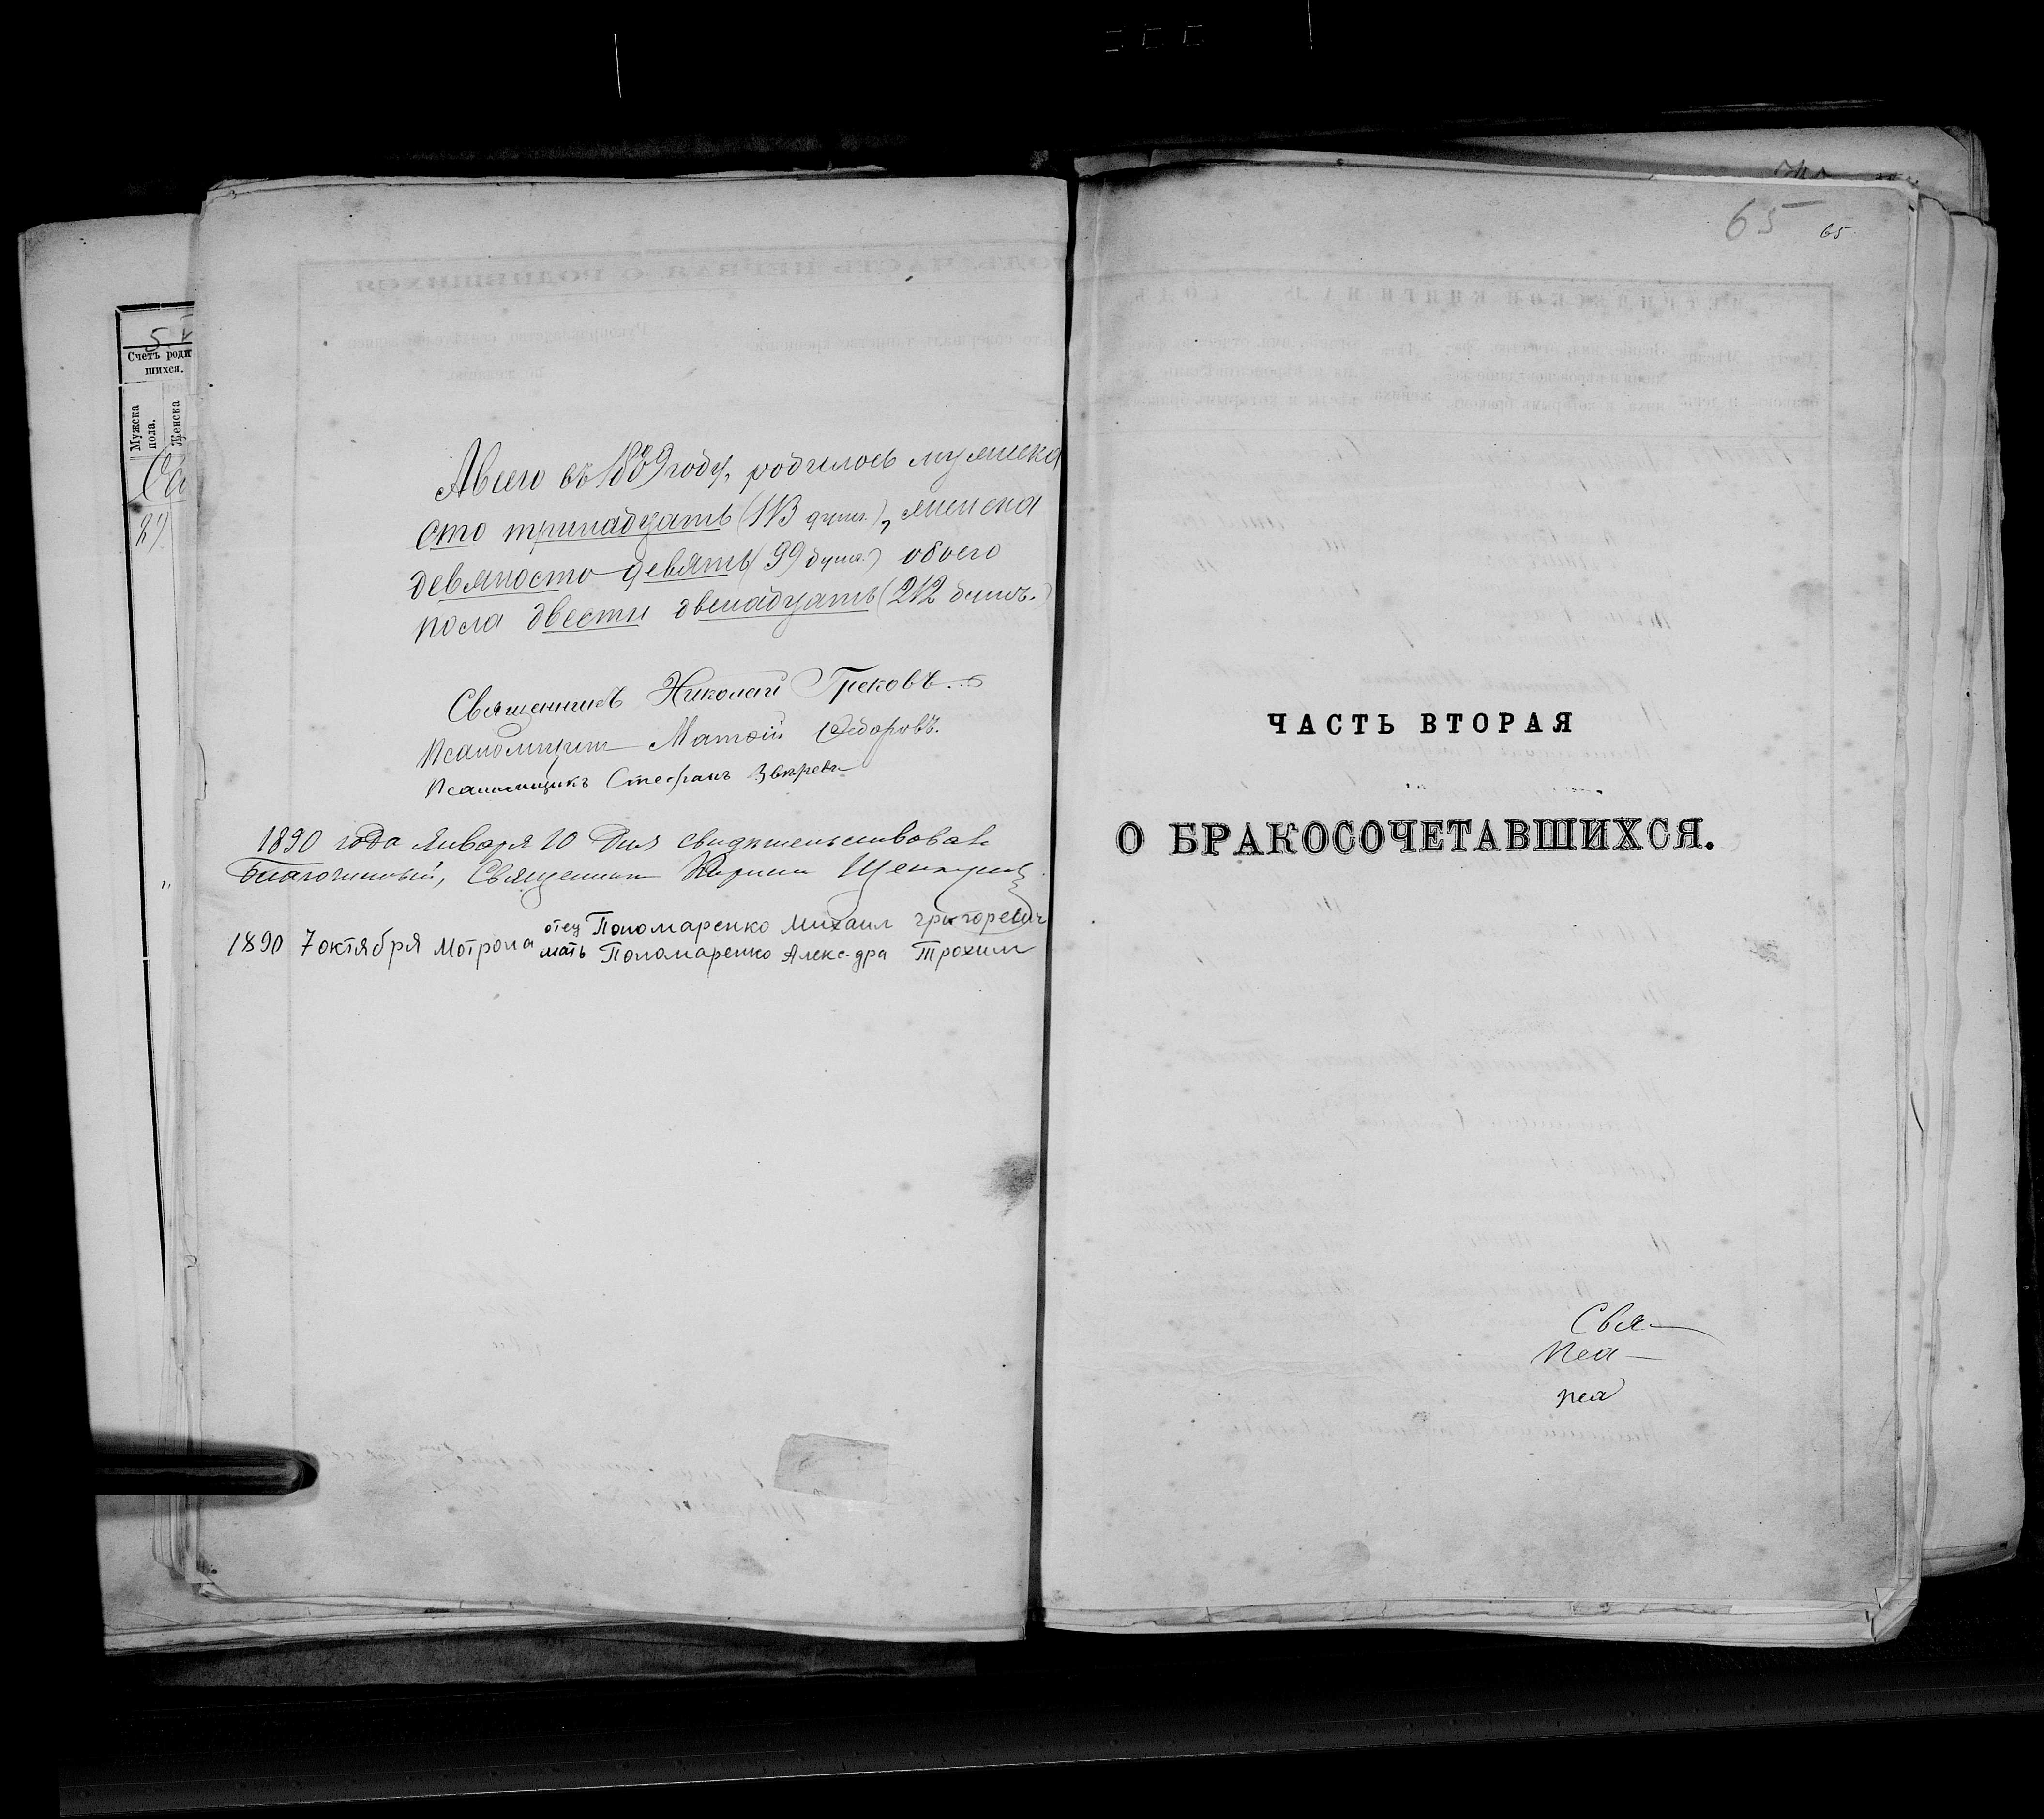 5
Счетъ роди
шихся.
Мужска
пола.
Женска
А всего въ 1889 году, родилось мужска
сто тринадцать (113 душ.), женска
девяносто девять (99 душ.) обоего
пола двести двенадцать (212 душъ.)
Священникъ Николай Грековъ.
Псаломщик Матѳій Ѳедоровъ.
Псаломщикъ Стефанъ Зверевъ
1890 года Января 10 дня свидѣтельствовалъ
Благочинный, Священник
1890 7 октября Мотрона отец Пономаренко Михаил григоревич
мать Пономаренко Алекс-дра Трохим
65 65
ЧАСТЬ ВТОРАЯ
О БРАКОСОЧЕТАВШИХСЯ.
Свя—
Пса—
пса